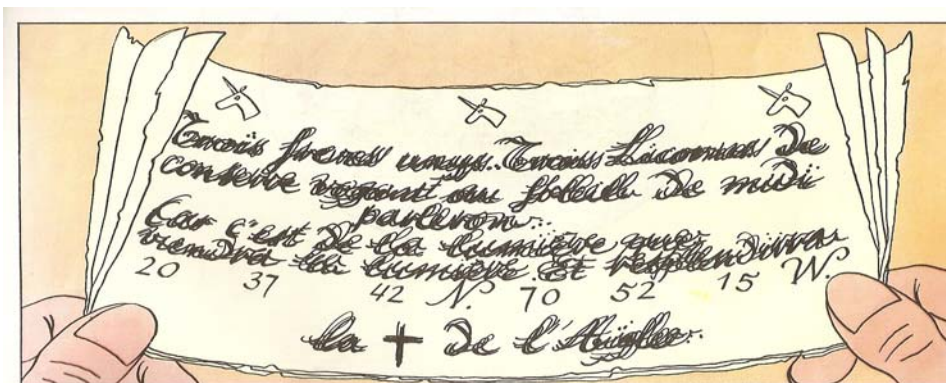 Troiis freres unys. Troiis Licornes de
conserve vogant au solleil de midi
parleron.
Car c'est de la lumière que
viendra la lumière Et resplendira
20 37 42 N. 70 52 15 W.
la + de l'Aigle.